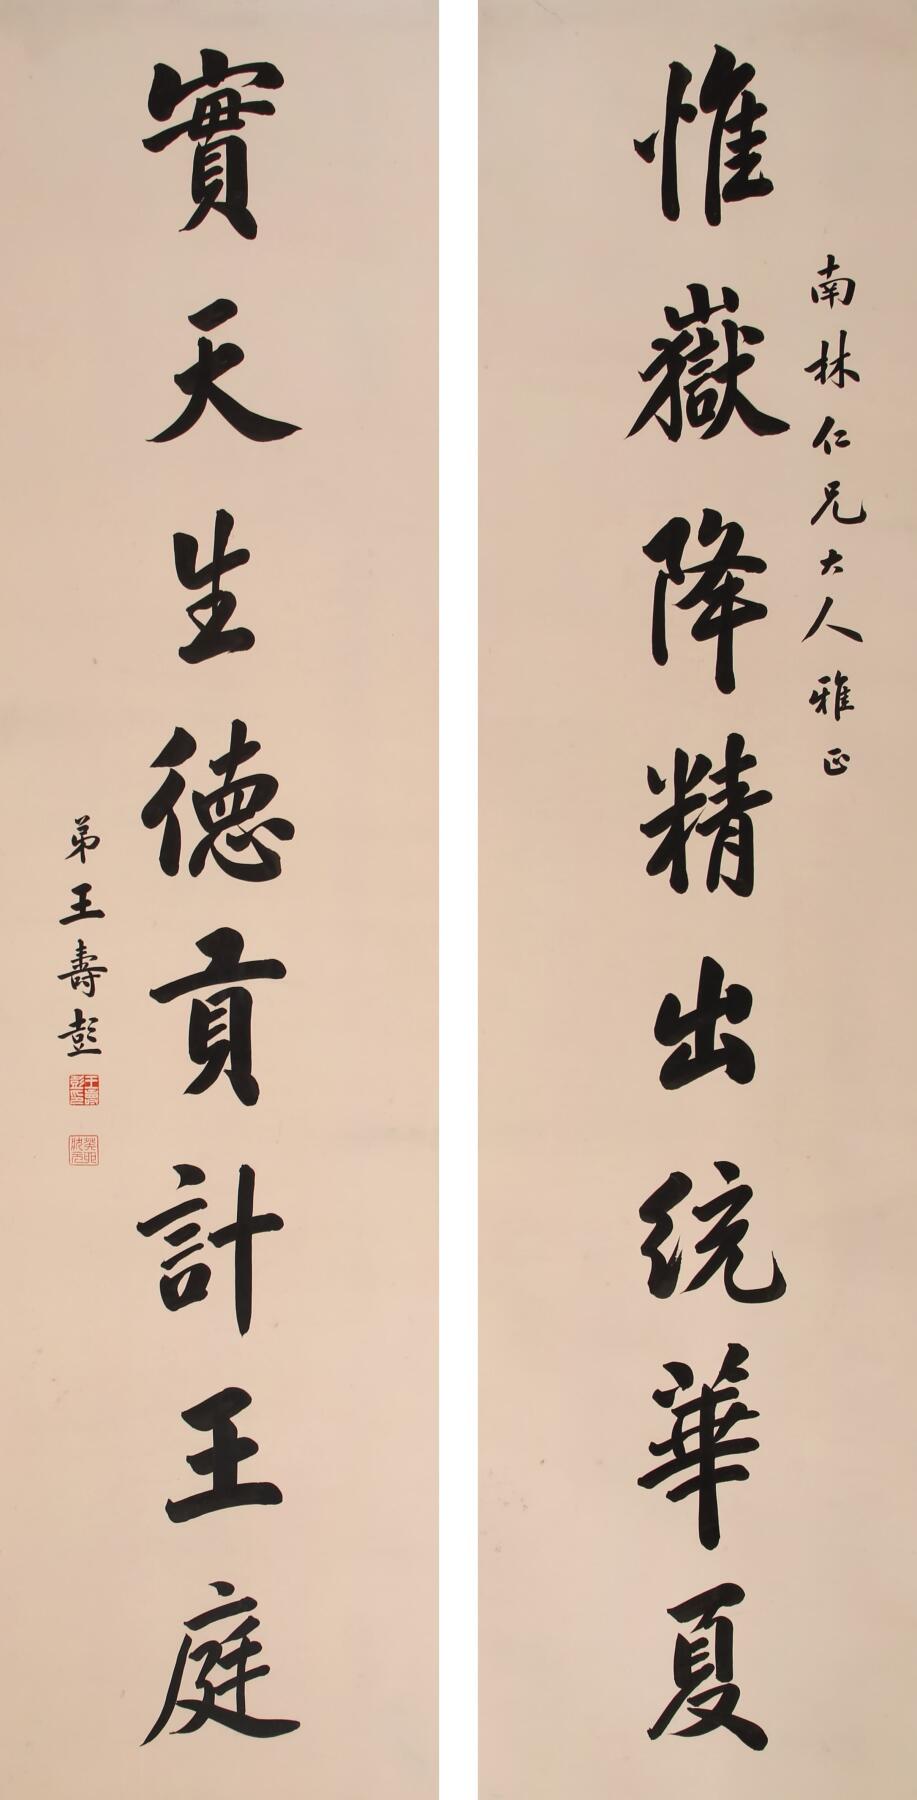 南林仁兄大人雅正
惟嶽降精出統華夏
實天生德貢計王庭
弟王壽彭
王壽彭印